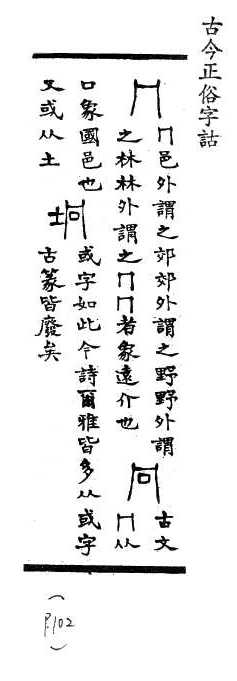 古今正俗字詁
冂
冂邑外謂之郊郊外謂之野野外謂
之林林外謂之冂冂者象遠介也
冋
古文
冂从
口象國邑也
又或从土
坰
或字如此今詩爾雅皆多从或字
古篆皆廢矣
(P.102)